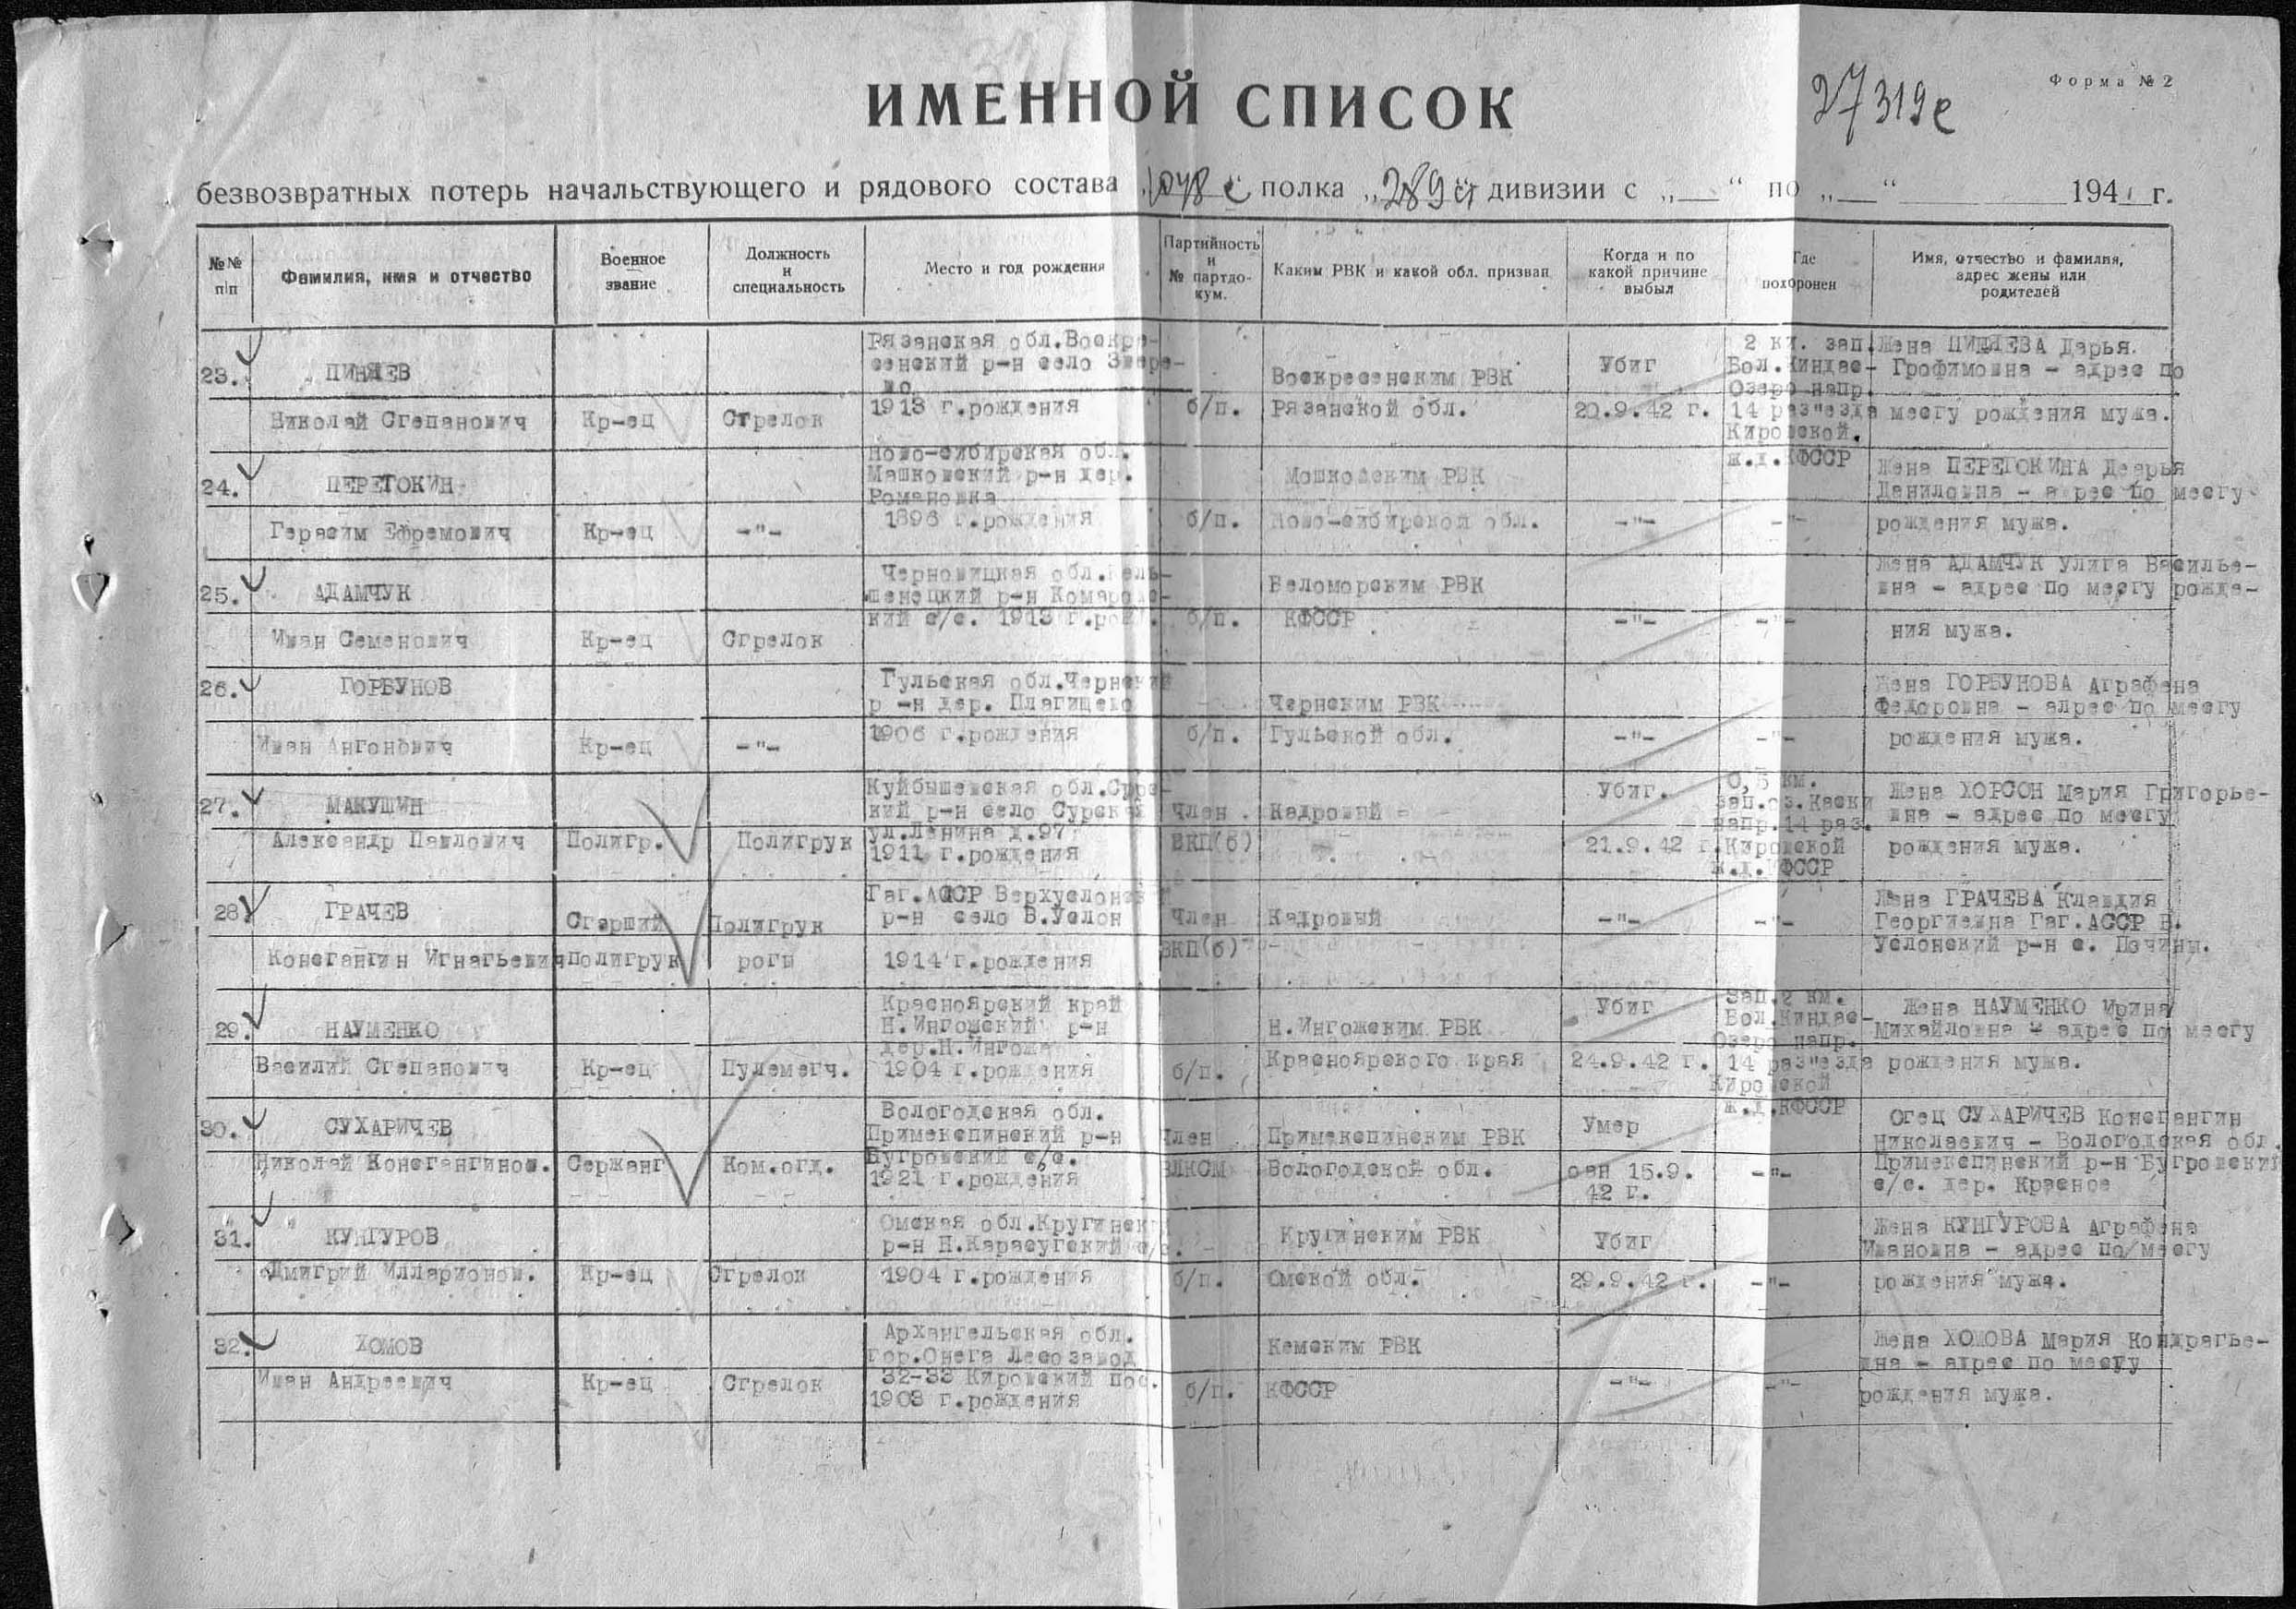 Форма № 2
27319с
ИМЕННОЙ СПИСОК
безвозвратных потерь начальствующего и рядового состава „1048 с“ полка „289 “ дивизии с „ “ по „ “ 194 г.
№№ п|п | Фамилия, имя и отчество | Военное звание | Должность и специальность | Место и год рождения | Партийность и № партдокум. | Каким РВК и какой обл. призван | Когда и по какой причине выбыл | Где похоронен | Имя, отчество и фамилия, адрес жены или родителей
23. ПИНЯЕВ Николай Степанович | Кр-ец | Стрелок | Рязанская обл.Воскресенский р-н село 1913 г.рождения | б/п. | Воскресенским РВК Рязанской обл. | Убит 20.9.42 г. | 2 км. зап. Вол.Киндас- Озеро напр. 14 раз"езда Кировской. ж.д.КФССР | Жена ПИНЯЕВА Дарья Трофимовна - адрес по месту рождения мужа.
24. ПЕРЕТОКИН Герасим Ефремович | Кр-ец | -"- | Ново-сибирская обл. Машковский р-н дер. Романовка 1896 г.рождения | б/п. | Мошковским РВК Ново-сибирской обл. | -"- | -"- | Жена ПЕРЕТОКИНА Даниловна - адрес по месту рождения мужа.
25. АДАМЧУК Иван Семенович | Кр-ец | Стрелок | Черновицкая обл. р-н с/с. 1913 г.рожд. | б/п. | Беломорским РВК КФССР | -"- | -"- | Жена АДАМЧУК Улита Васильевна - адрес по месту рождения мужа.
26. ГОРБУНОВ Иван Антонович | Кр-ец | -"- | Тульская обл.Чернский р-н дер. Плотицево 1906 г.рождения | б/п. | Чернским РВК Тульской обл. | -"- | -"- | Жена ГОРБУНОВА Аграфена Федоровна - адрес по месту рождения мужа.
27. МАКУШИН Александр Павлович | Политр. | Политрук | Куйбышевская обл.Сурский р-н село Сурский ул.Ленина д.97 1911 г.рождения | Член ВКП(б) | Кадровый | Убит. 21.9.42 г. | 0,5 км. зап.оз.Каски напр.14 раз. Кировской ж.д.КФССР | Жена ХОРСОН Мария Григорьевна - адрес по месту рождения мужа.
28. ГРАЧЕВ Константин Игнатьевич | Старший Политрук | Политрук роты | Тат.АССР Верхуслонск р-н село В.Услон 1914 г.рождения | Член ВКП(б) | Кадровый | -"- | -"- | Жена ГРАЧЕВА Клавдия Георгиевна Тат.АССР В. Услонский р-н с. Печищы.
29. НАУМЕНКО Василий Степанович | Кр-ец | Пулеметч. | Красноярский край Н.Ингожский р-н дер.Н.Ингожа 1904 г.рождения | б/п. | Н.Ингожским РВК Красноярского края | Убит 24.9.42 г. | Зап.2 км. Вол.Киндас- Озеро напр. 14 раз"езда Кировской ж.д.КФССР | Жена НАУМЕНКО Ирина Михайловна - адрес по месту рождения мужа.
30. СУХАРИЧЕВ Николай Константинов. | Сержант | Ком.отд. | Вологодская обл. Примекспинский р-н Бугровский с/с. 1921 г.рождения | Член ВЛКСМ | Примекспинским РВК Вологодской обл. | Умер 15.9. 42 г. | -"- | Отец СУХАРИЧЕВ Константин Николаевич - Вологодская обл. Примекспинский р-н Бугровский с/с. дер. Красное
31. КУНГУРОВ Дмитрий Илларионов. | Кр-ец | Стрелок | Омская обл.Крутинск р-н Н.Карасутский с/с. 1904 г.рождения | б/п. | Крутинским РВК Омской обл. | Убит 29.9.42 г. | -"- | Жена КУНГУРОВА Аграфена Ивановна - адрес по месту рождения мужа.
32. ХОМОВ Иван Андреевич | Кр-ец | Стрелок | Архангельская обл. гор.Онега Лесозавод 32-33 Кировский пос. 1903 г.рождения | б/п. | Кемским РВК КФССР | -"- | -"- | Жена ХОМОВА Мария Кондратьевна - адрес по месту рождения мужа.